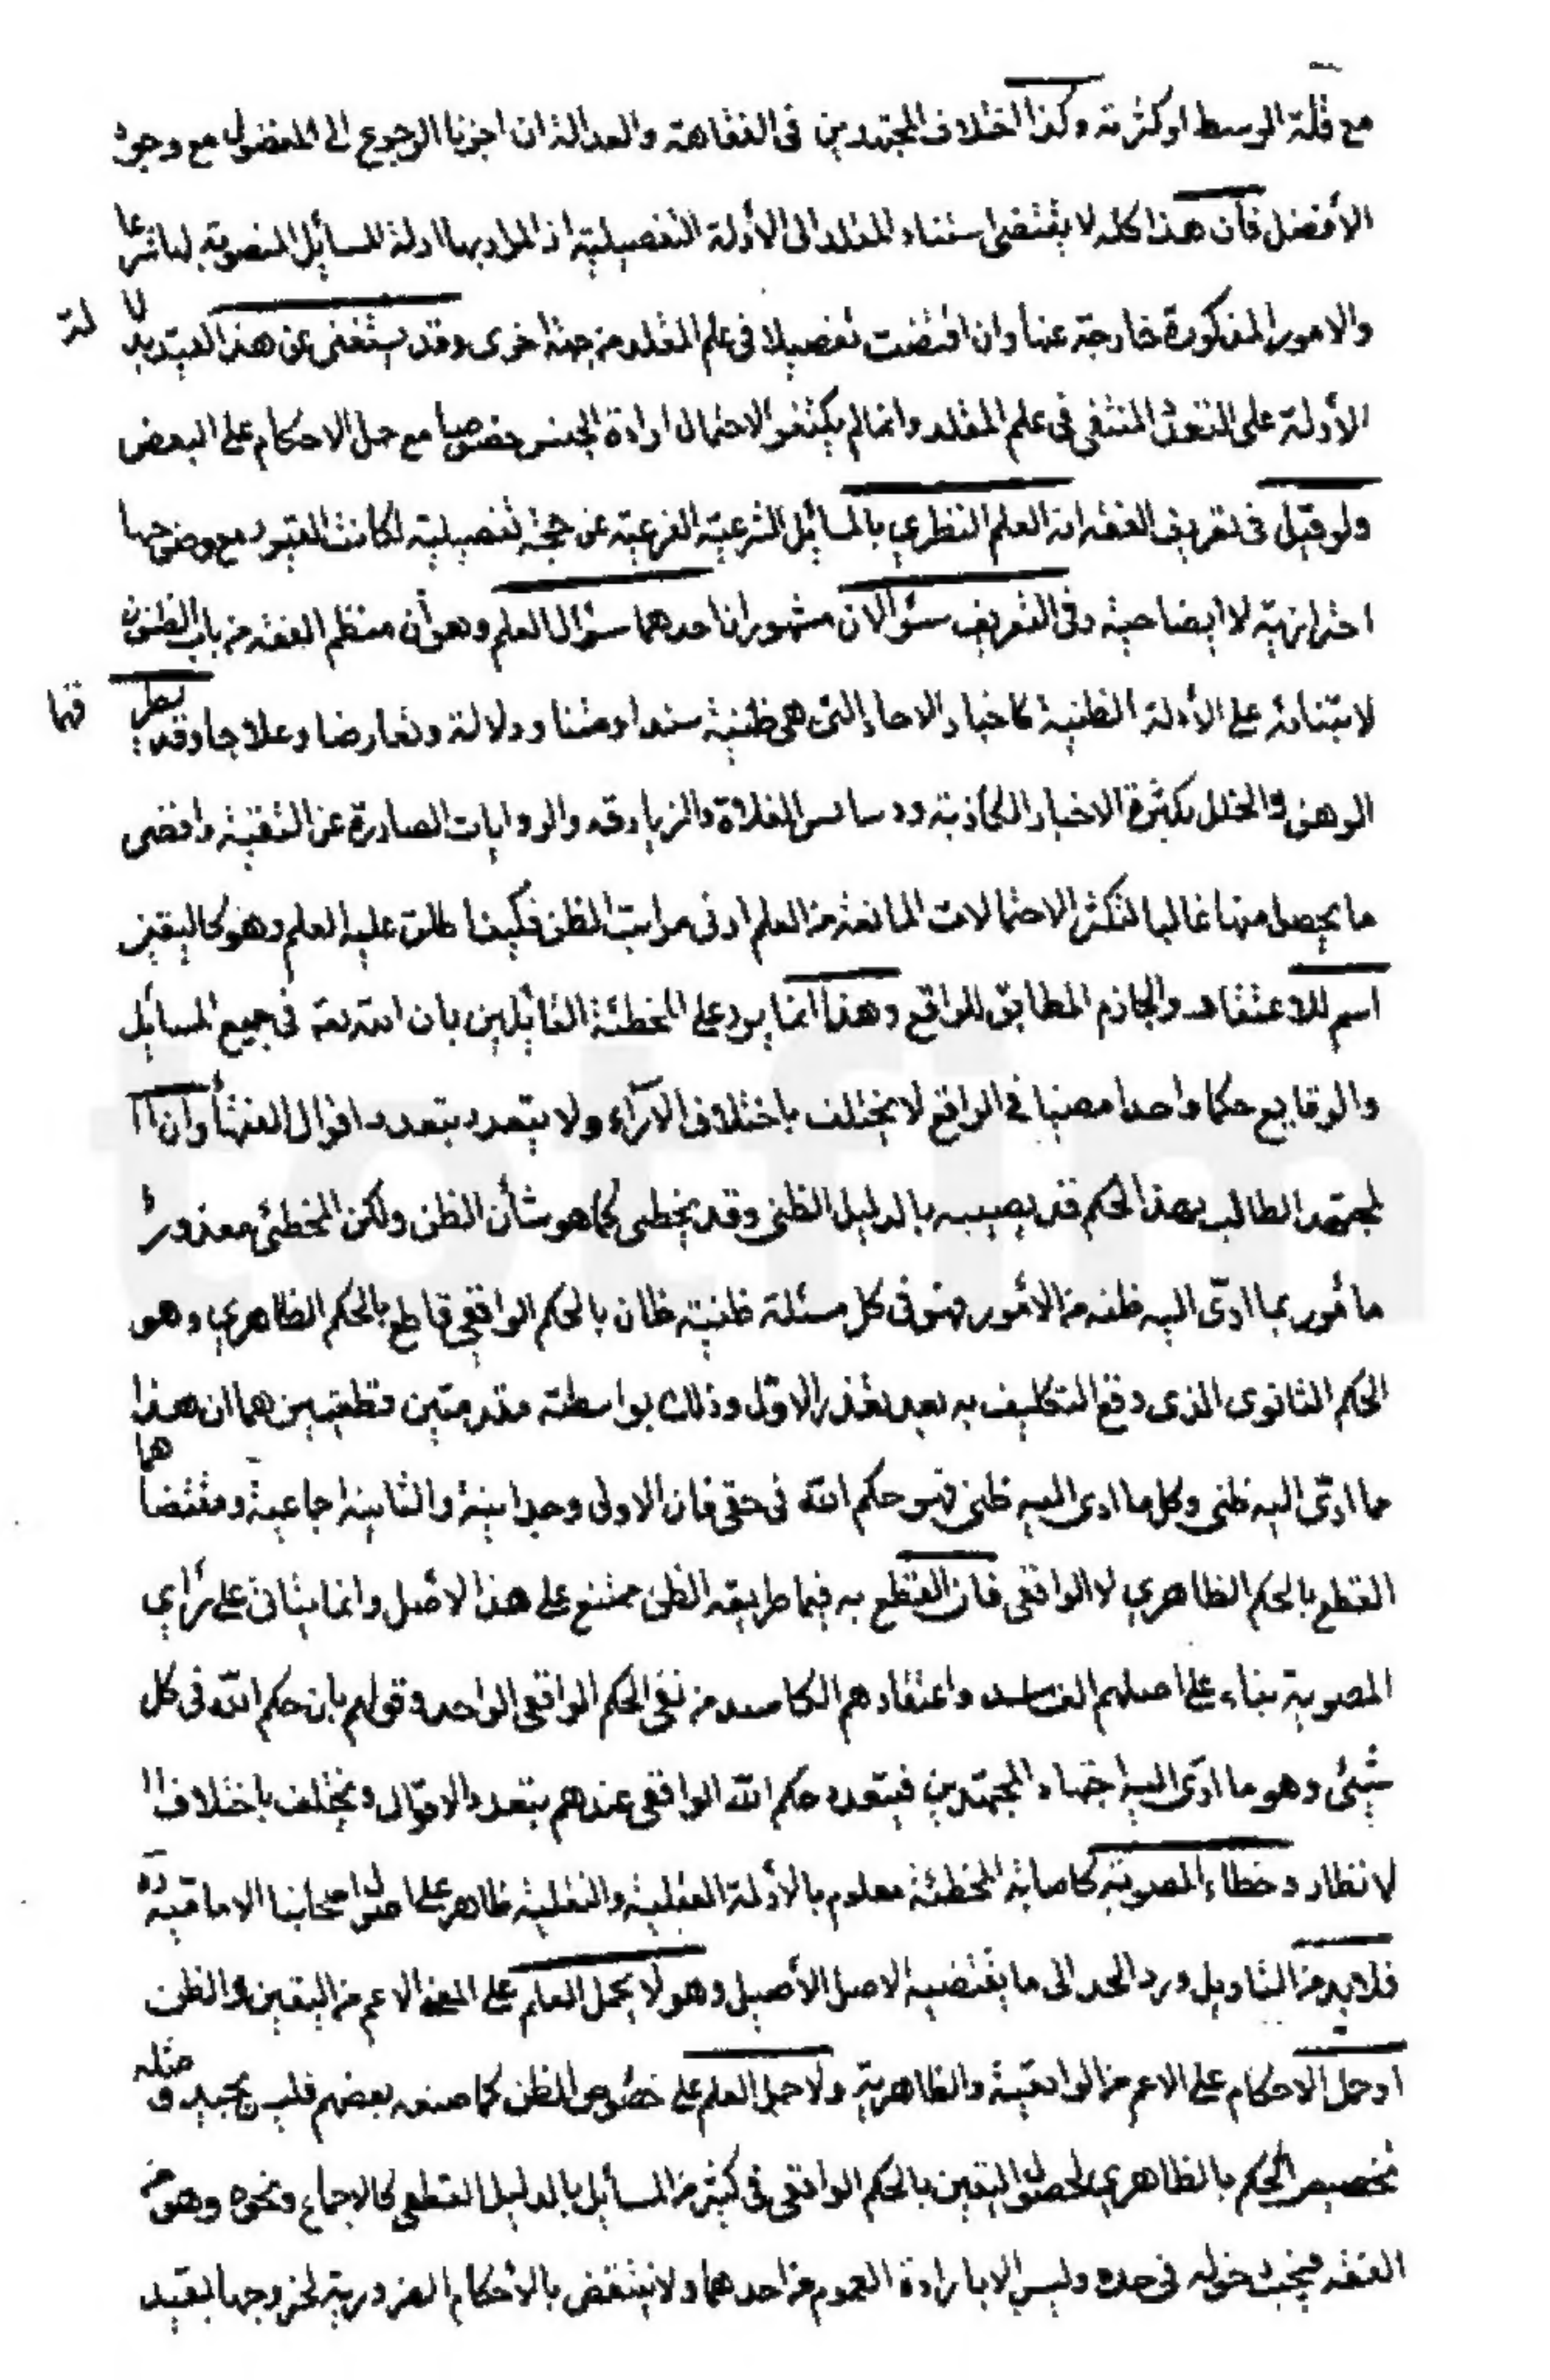 مع قلة الوسط او كثرته وكذا اختلاف المجتهدين فى الفقاهة والعدالة ان اجزنا الرجوع الى المفضول مع وجود
الأفضل فان هذا كله لا يقتضى استناد المقلد الى الأدلة التفصيلية اذ المراد بها ادلة المسائل المنصوبة لها شرعا
والامور المذكورة خارجة عنها وان اقتضت تفصيلا فى علم المقلد من جهة اخرى وقد يستغنى عن هذا القيد بدلالة
الأدلة على التعدد المنتفى فى علم المقلد وانما لم يكتفوا لاحتمال ارادة الجنس خصوصا مع حمل الاحكام على البعض
ولو قيل فى تعريف الفقه انه العلم النظري بالمسائل الشرعية الفرعية عن حجة تفصيلية لكانت القيود مع وضوحها
احترازية لا ايضاحية وفى التعريف سؤالان مشهوران احدهما سؤال العلم وهو أن معظم الفقه من باب الظنون
لابتنائه على الأدلة الظنية كاخبار الاحاد التى هى ظنية سندا ومتنا ودلالة وتعارضا وعلاجا وقد يطرقها
الوهن والخلل بكثرة الاخبار الكاذبة ودسائس الغلاة والزنادقه والروايات الصادرة عن التقية واقصى
ما يحصل منها غالبا لتكثر الاحتمالات المانعة من العلم ادنى مراتب الظن فكيف اطلق عليه العلم وهو كاليقين
اسم للاعتقاد والجازم المطابق للواقع وهذا انما يرد على المخطئة القائلين بان لله تعه فى جميع المسائل
والوقايع حكما واحدا معينا في الواقع لا يختلف باختلاف الآراء ولا يتعدد بتعدد اقوال الفقهأ وان ا
لمجتهد الطالب بهذا الحكم قد يصيبه بالدليل الظنى وقد يخطى كما هو شأن الظن ولكن المخطئ معذور
مأمور بما ادّى اليه ظنه من الأمور فهو فى كل مسئلة ظنية ظان بالحكم الواقعي قاطع بالحكم الظاهري وهو
الحكم الثانوى الذى وقع التكليف به بعد تعذر الاوّل وذلك بواسطة مقدمتين قطعيتين هما ان هذا
ما ادّى اليه ظنى وكل ما ادى اليه ظنى فهو حكم الله فى حقى فان الاولى وجدانية والثانية اجماعية ومقتضاهما
القطع بالحكم الظاهري لا الواقعى فان القطع به فيما طريقه الظن ممتنع على هذا الأصل وانما يتأتى على رأي
المصوبة بناء على اصلهم الفاسد واعتقادهم الكاسد من نفى الحكم الواقعى الواحد وقولهم بان حكم الله فى كل
شيئ وهو ما ادّى اليه اجتهاد المجتهدين فيتعدد حكم الله الواقعى عندهم بتعدد الاقوال ويختلف باختلاف ا
لانظار وخطاء المصوبة كاصابة المخطئة معلوم بالأدلة العقلية والنقلية ظاهر على اصول اصحابنا الامامية ره
فلابد من التاويل ورد الحد الى ما يقتضيه الاصل الأصيل وهو لا يحمل العلم على المعنى الاعم من اليقين والظن
او حمل الاحكام على الاعم من الواقعية والظاهرية ولا حمل العلم على خصوص الظن كما صنعه بعضهم فليس بجيد ومثله
تخصيص الحكم بالظاهري لحصول اليقين بالحكم الواقعى فى كثير من المسائل بالدليل القطعى كالاجماع ونحوه وهو من
الفقه فيجب دخوله فى حده وليس الا بارادة العموم من احدهما ولا ينتقض بالأحكام الضرورية لخروجها بقيد